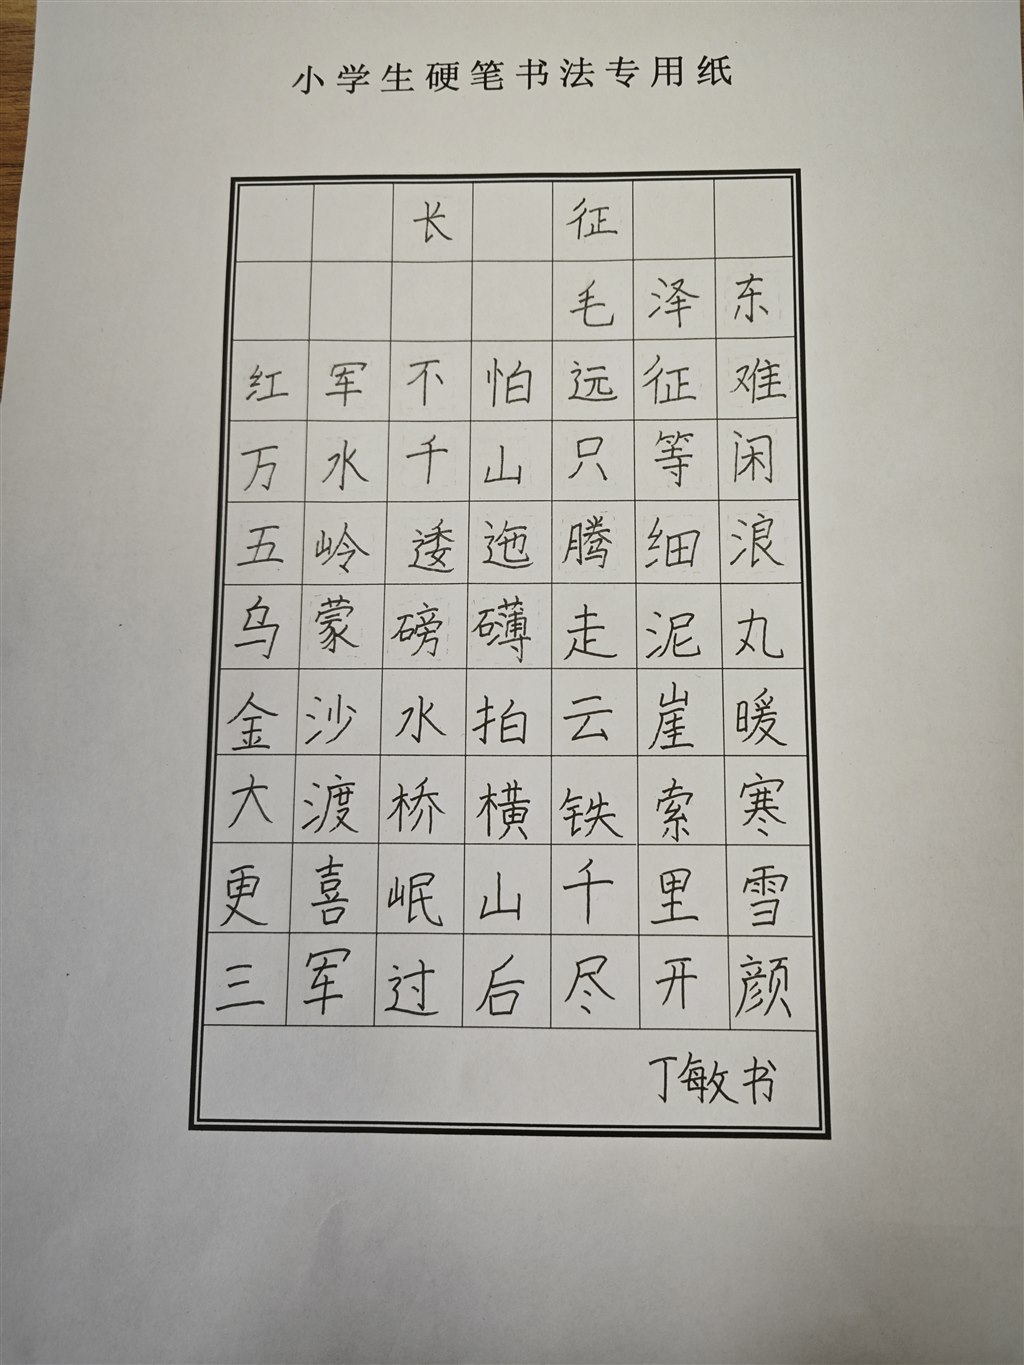 小学生硬笔书法专用纸
长征
毛泽东
红军不怕远征难
万水千山只等闲
五岭逶迤腾细浪
乌蒙磅礴走泥丸
金沙水拍云崖暖
大渡桥横铁索寒
更喜岷山千里雪
三军过后尽开颜
丁敏书